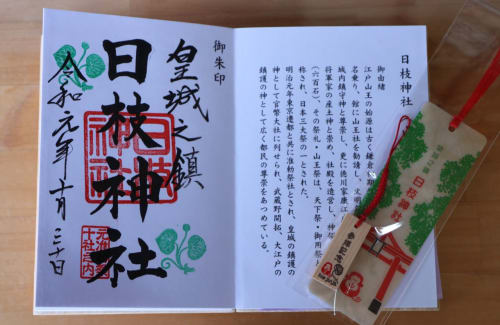 日枝神社
御由緒
江戸山王の始源は古く鎌倉初期
名乗り、館に山王社を勧請し、文明
城内鎮守神と尊崇し、更に徳川家康江
将軍家の産土神と崇め、社殿を造営し、神
(六百石)、その祭礼・山王祭は、天下祭・御用祭と
称され、日本三大祭の一とされた。
明治元年東京遷都と共に准勅祭社とされ、皇城の鎮護の
神として官幣大社に列せられ、武蔵野開拓、大江戸の
鎮護の神として広く都民の尊崇をあつめている。
御朱印
皇城之鎮
日枝神社
令和元年十月三十日
十社之内
日枝神社
参拝記念